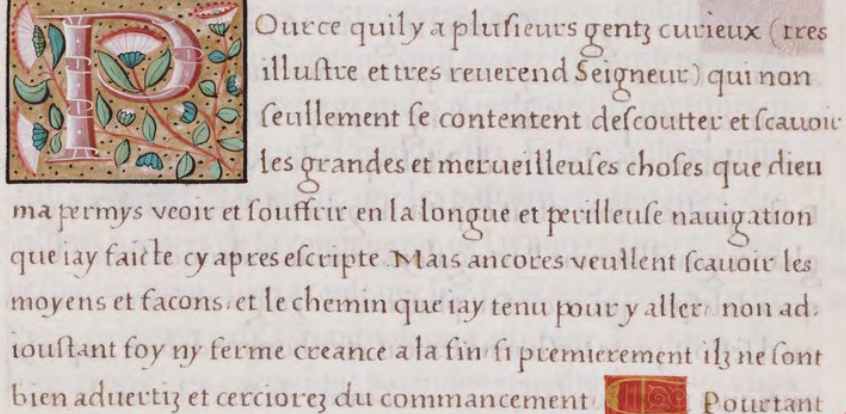 Pource quil y a plusieurs gentz curieux (tres
illustre et tres reuerend Seigneur) qui non
seullement se contentent descoutter et scauoir
les grandes et merueilleuses choses que dieu
ma permys veoir et souffrir en la longue et perilleuse nauigation
que iay faicte cy apres escripte. Mais ancores veullent scauoir les
moyens et facons, et le chemin que iay tenu pour y aller, non ad,
ioustant foy ny ferme creance a la fin, si premierement ilz ne sont
bien aduertiz et cerciorez du commancement Pourtant